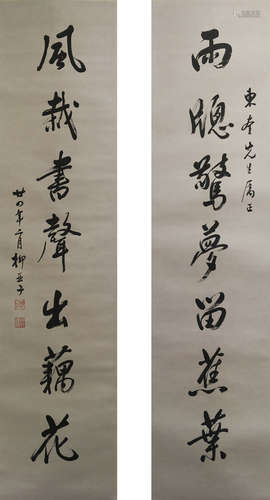 東奎先生屬正
雨聰驚夢留蕉葉
風裁書聲出藕花
廿四年二月柳亞子